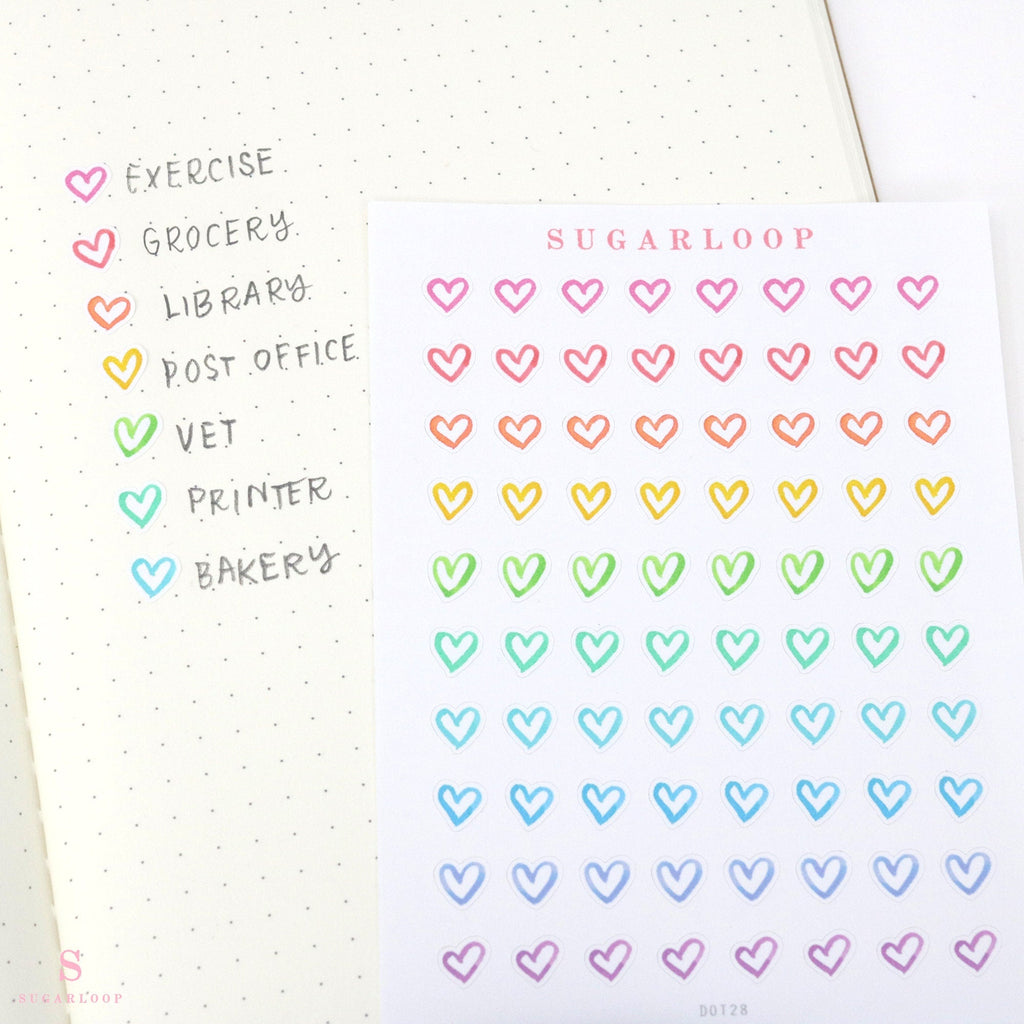 EXERCISE
GROCERY
LIBRARY
POST OFFICE
VET
PRINTER
BAKERY
SUGARLOOP
DOT28
S
SUGARLOOP